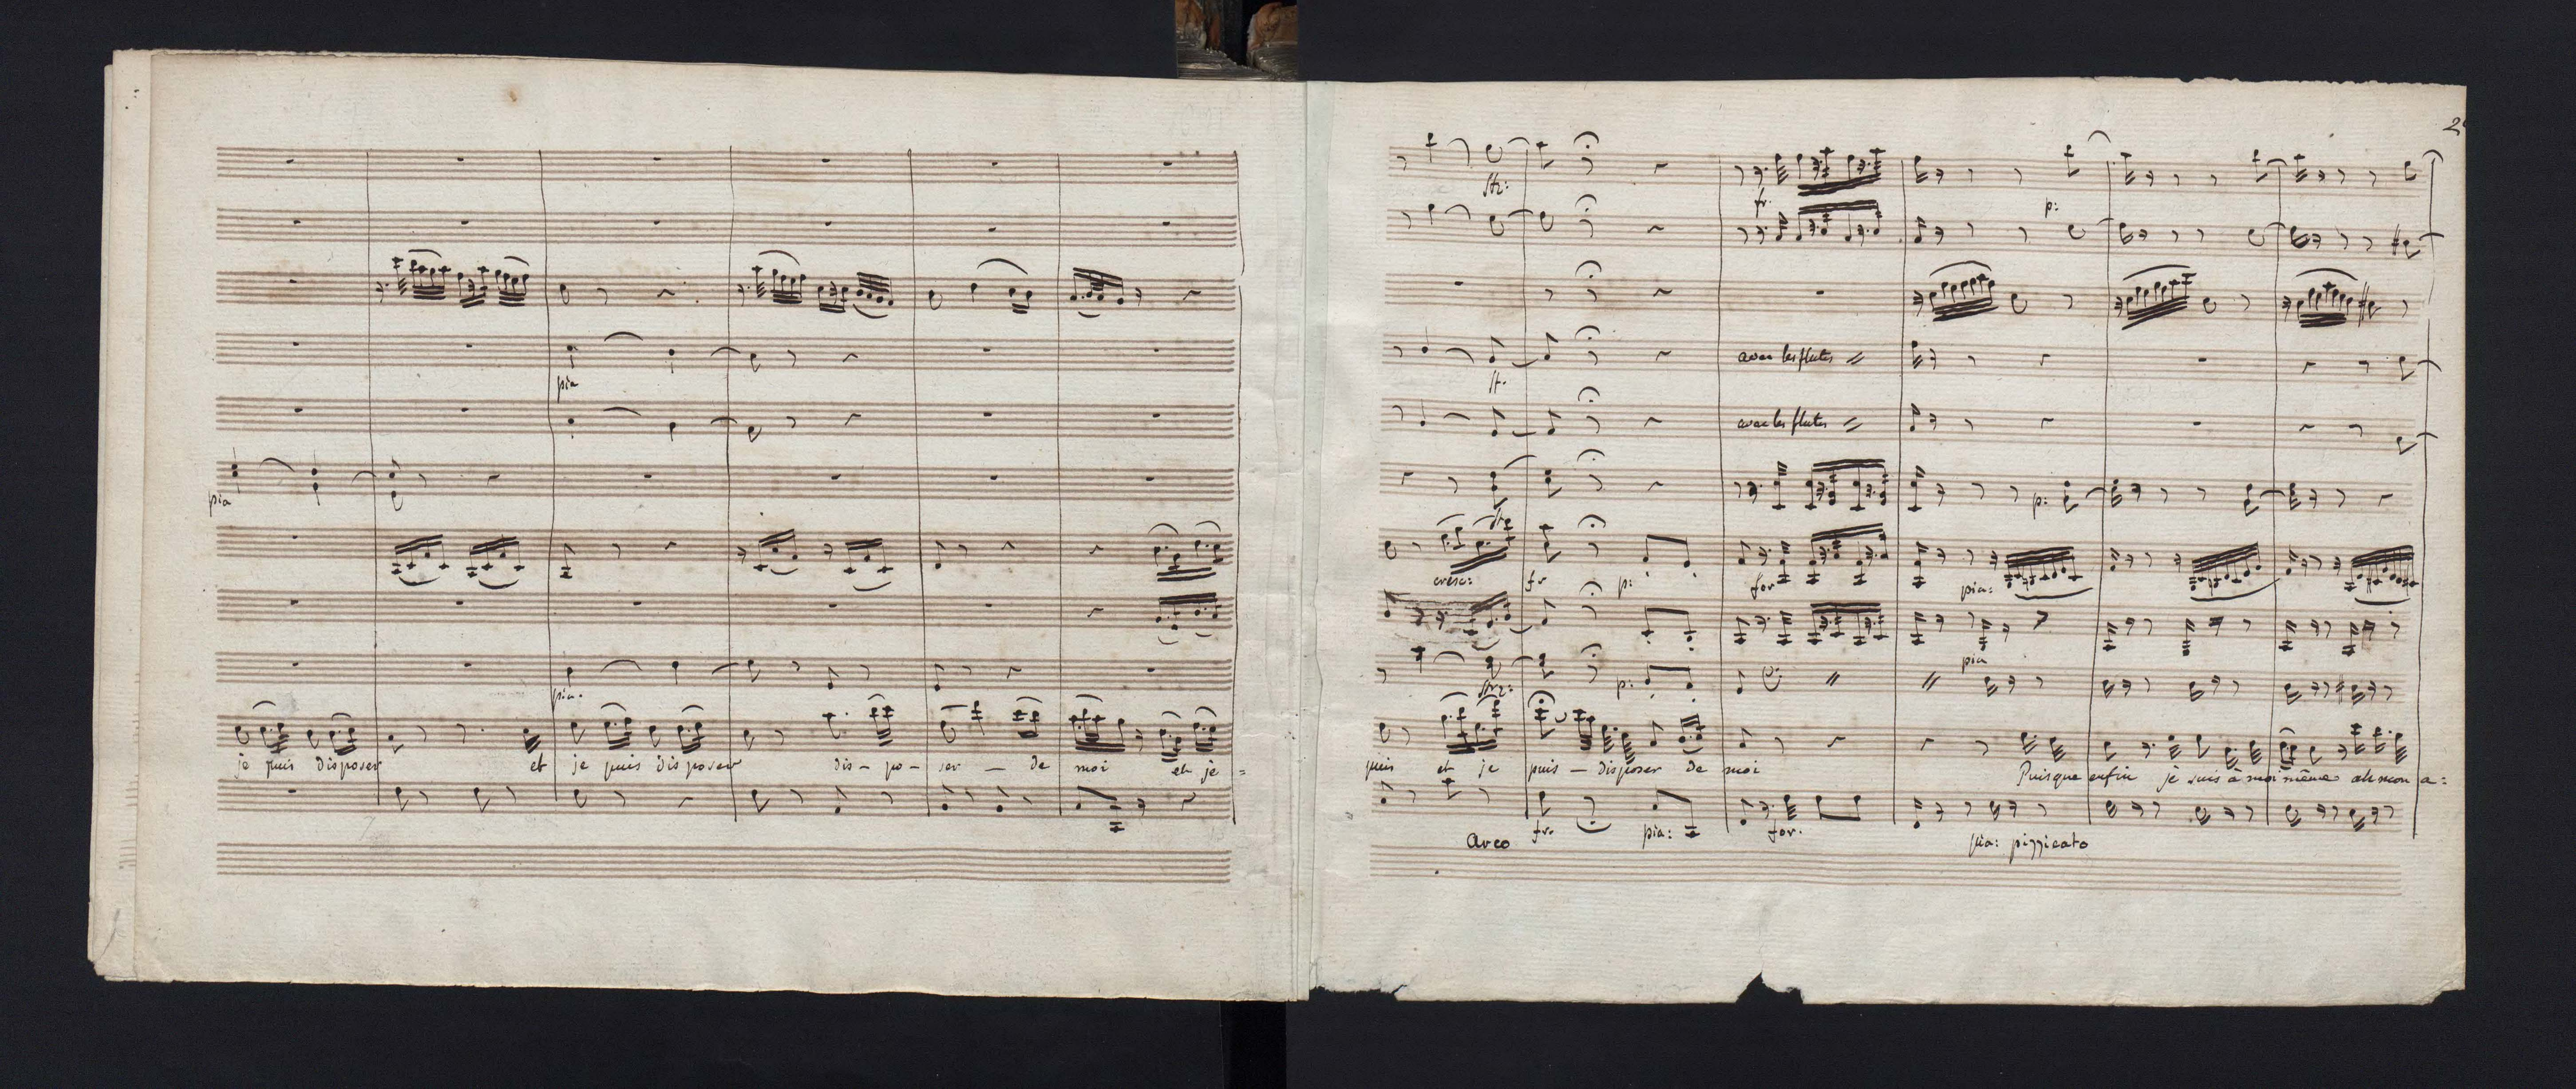 pia
pia
pia.
je puis disposer et je puis disposer dis - po - ser - de moi et je =
2
fr.
p:
avec les flutes
avec les flutes
p:
cresc: fr p: for pia:
pia
p:
puis et je puis - disposer de moi Puisque enfin je suis à moi même ah mon a:
Arco fr. pia: for. pia: pizzicato